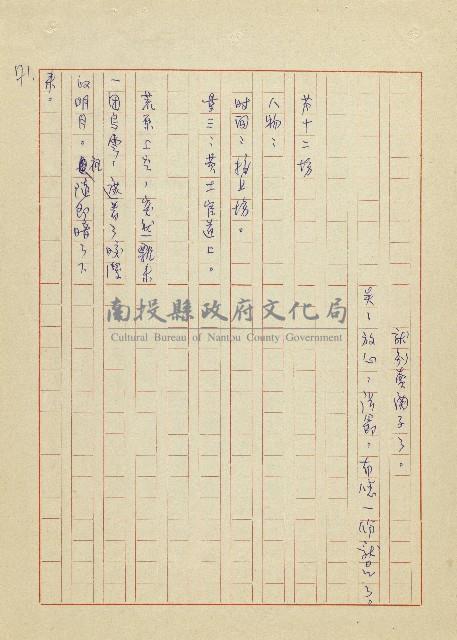 就到賣滷子了。
吳：放心，潘爺，有您一份就是了。
第十二場
人物：
時間：接上場。
景三：黃土官道上。
荒原上空，突然飄來
一團烏雲，遮着了皎潔
的明月。視 隨即暗了下
來。
71.
南投縣政府文化局
Cultural Bureau of Nantou County Government